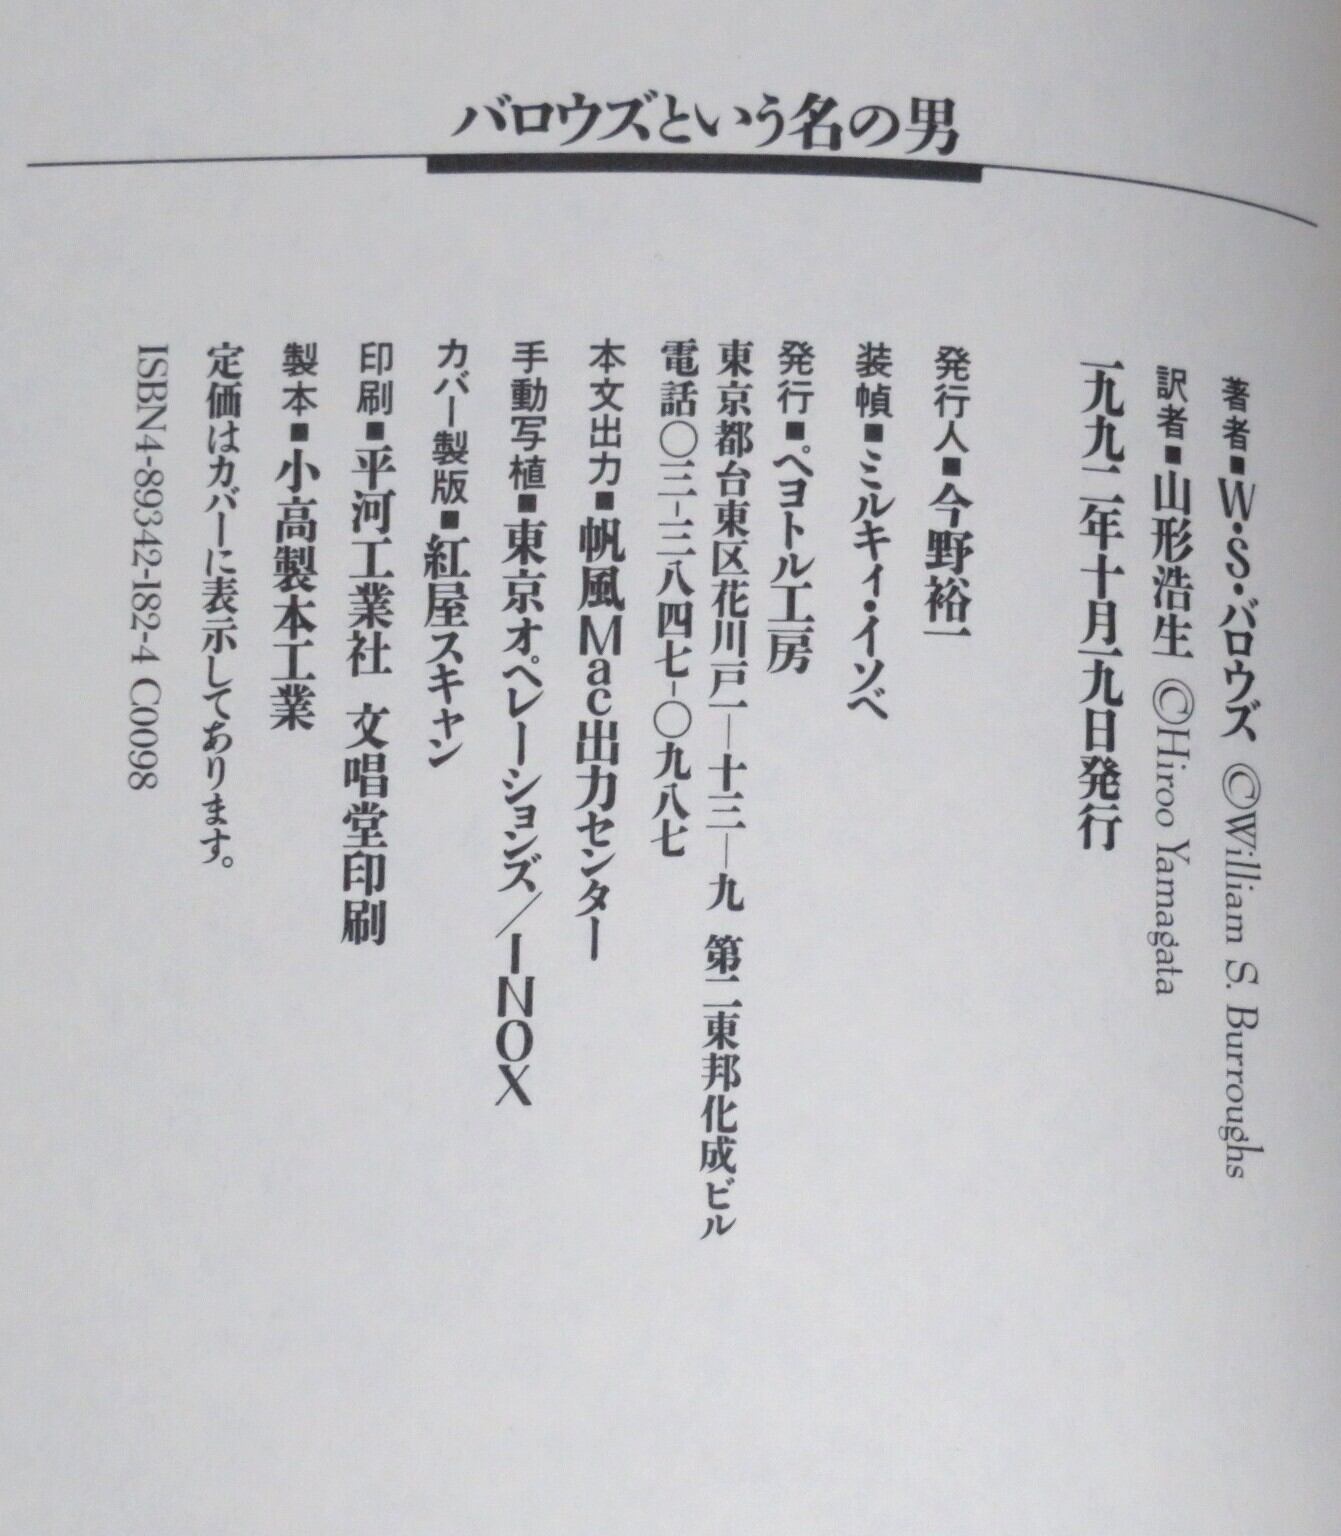 バロウズという名の男
著者■W・S・バロウズ ©William S. Burroughs
訳者■山形浩生 ©Hiroo Yamagata
一九九二年十月一九日発行
発行人■今野裕一
装幀■ミルキィ・イソベ
発行■ペヨトル工房
東京都台東区花川戸一—十三—九 第二東邦化成ビル
電話〇三-三八四七-〇九八七
本文出力■帆風Mac出力センター
手動写植■東京オペレーションズ/INOX
カバー製版■紅屋スキャン
印刷■平河工業社 文唱堂印刷
製本■小高製本工業
定価はカバーに表示してあります。
ISBN4-89342-182-4 C0098